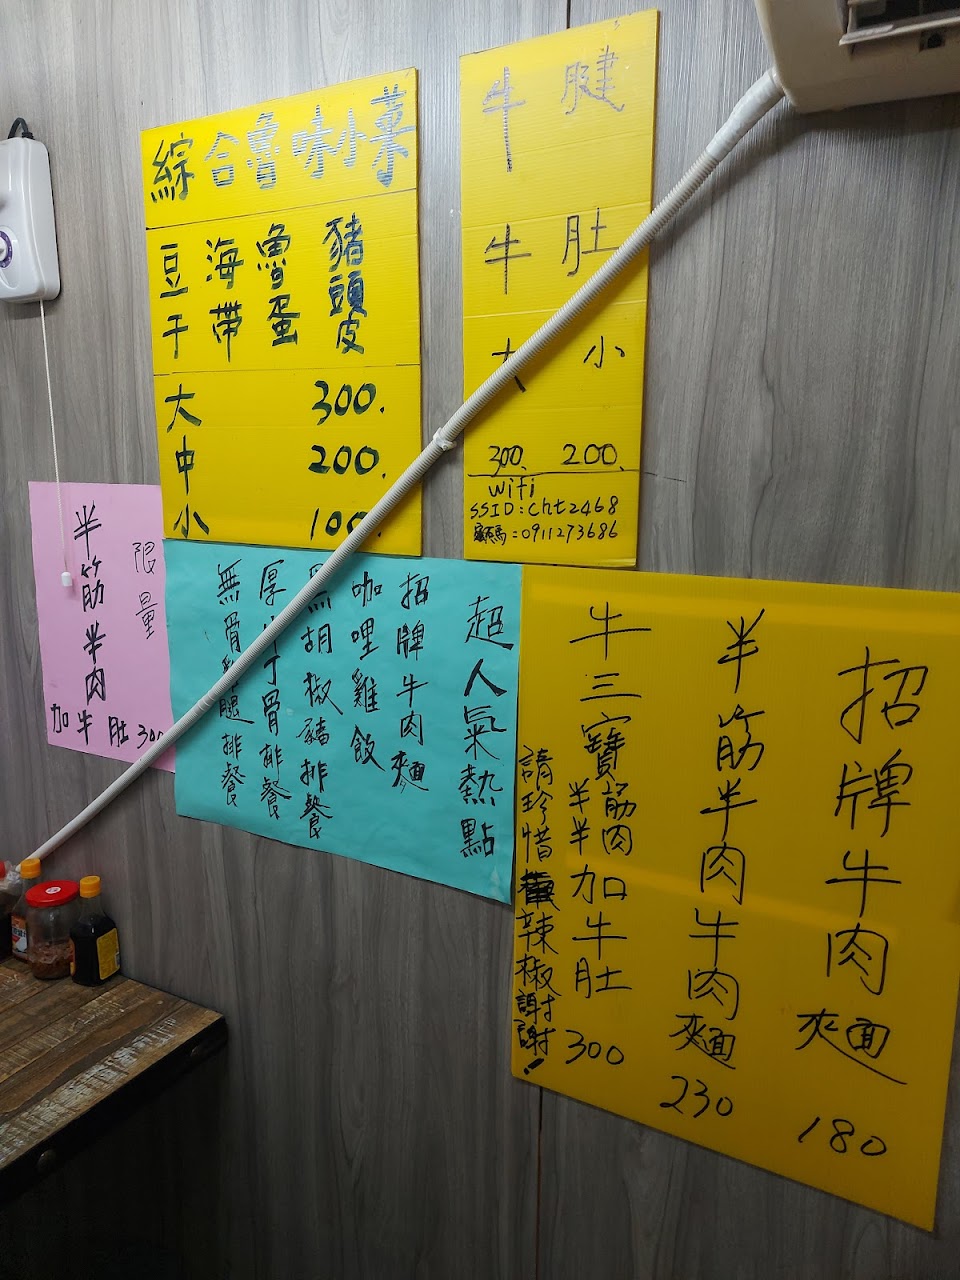 綜合魯味小菜
豆干 海帶 魯蛋 豬頭皮
大 300.
中 200.
小 100.
牛腱
牛肚
大 小
300. 200.
wifi
SSID:cht2468
密碼:0911273686
限量
半筋半肉
加牛肚300
超人氣熱點
招牌牛肉麵
咖哩雞飯
黑胡椒豬排餐
厚片丁骨排餐
無骨雞腿排餐
招牌牛肉麵 180
半筋半肉牛肉麵 230
牛三寶半筋半肉加牛肚 300
請珍惜辣椒謝謝!